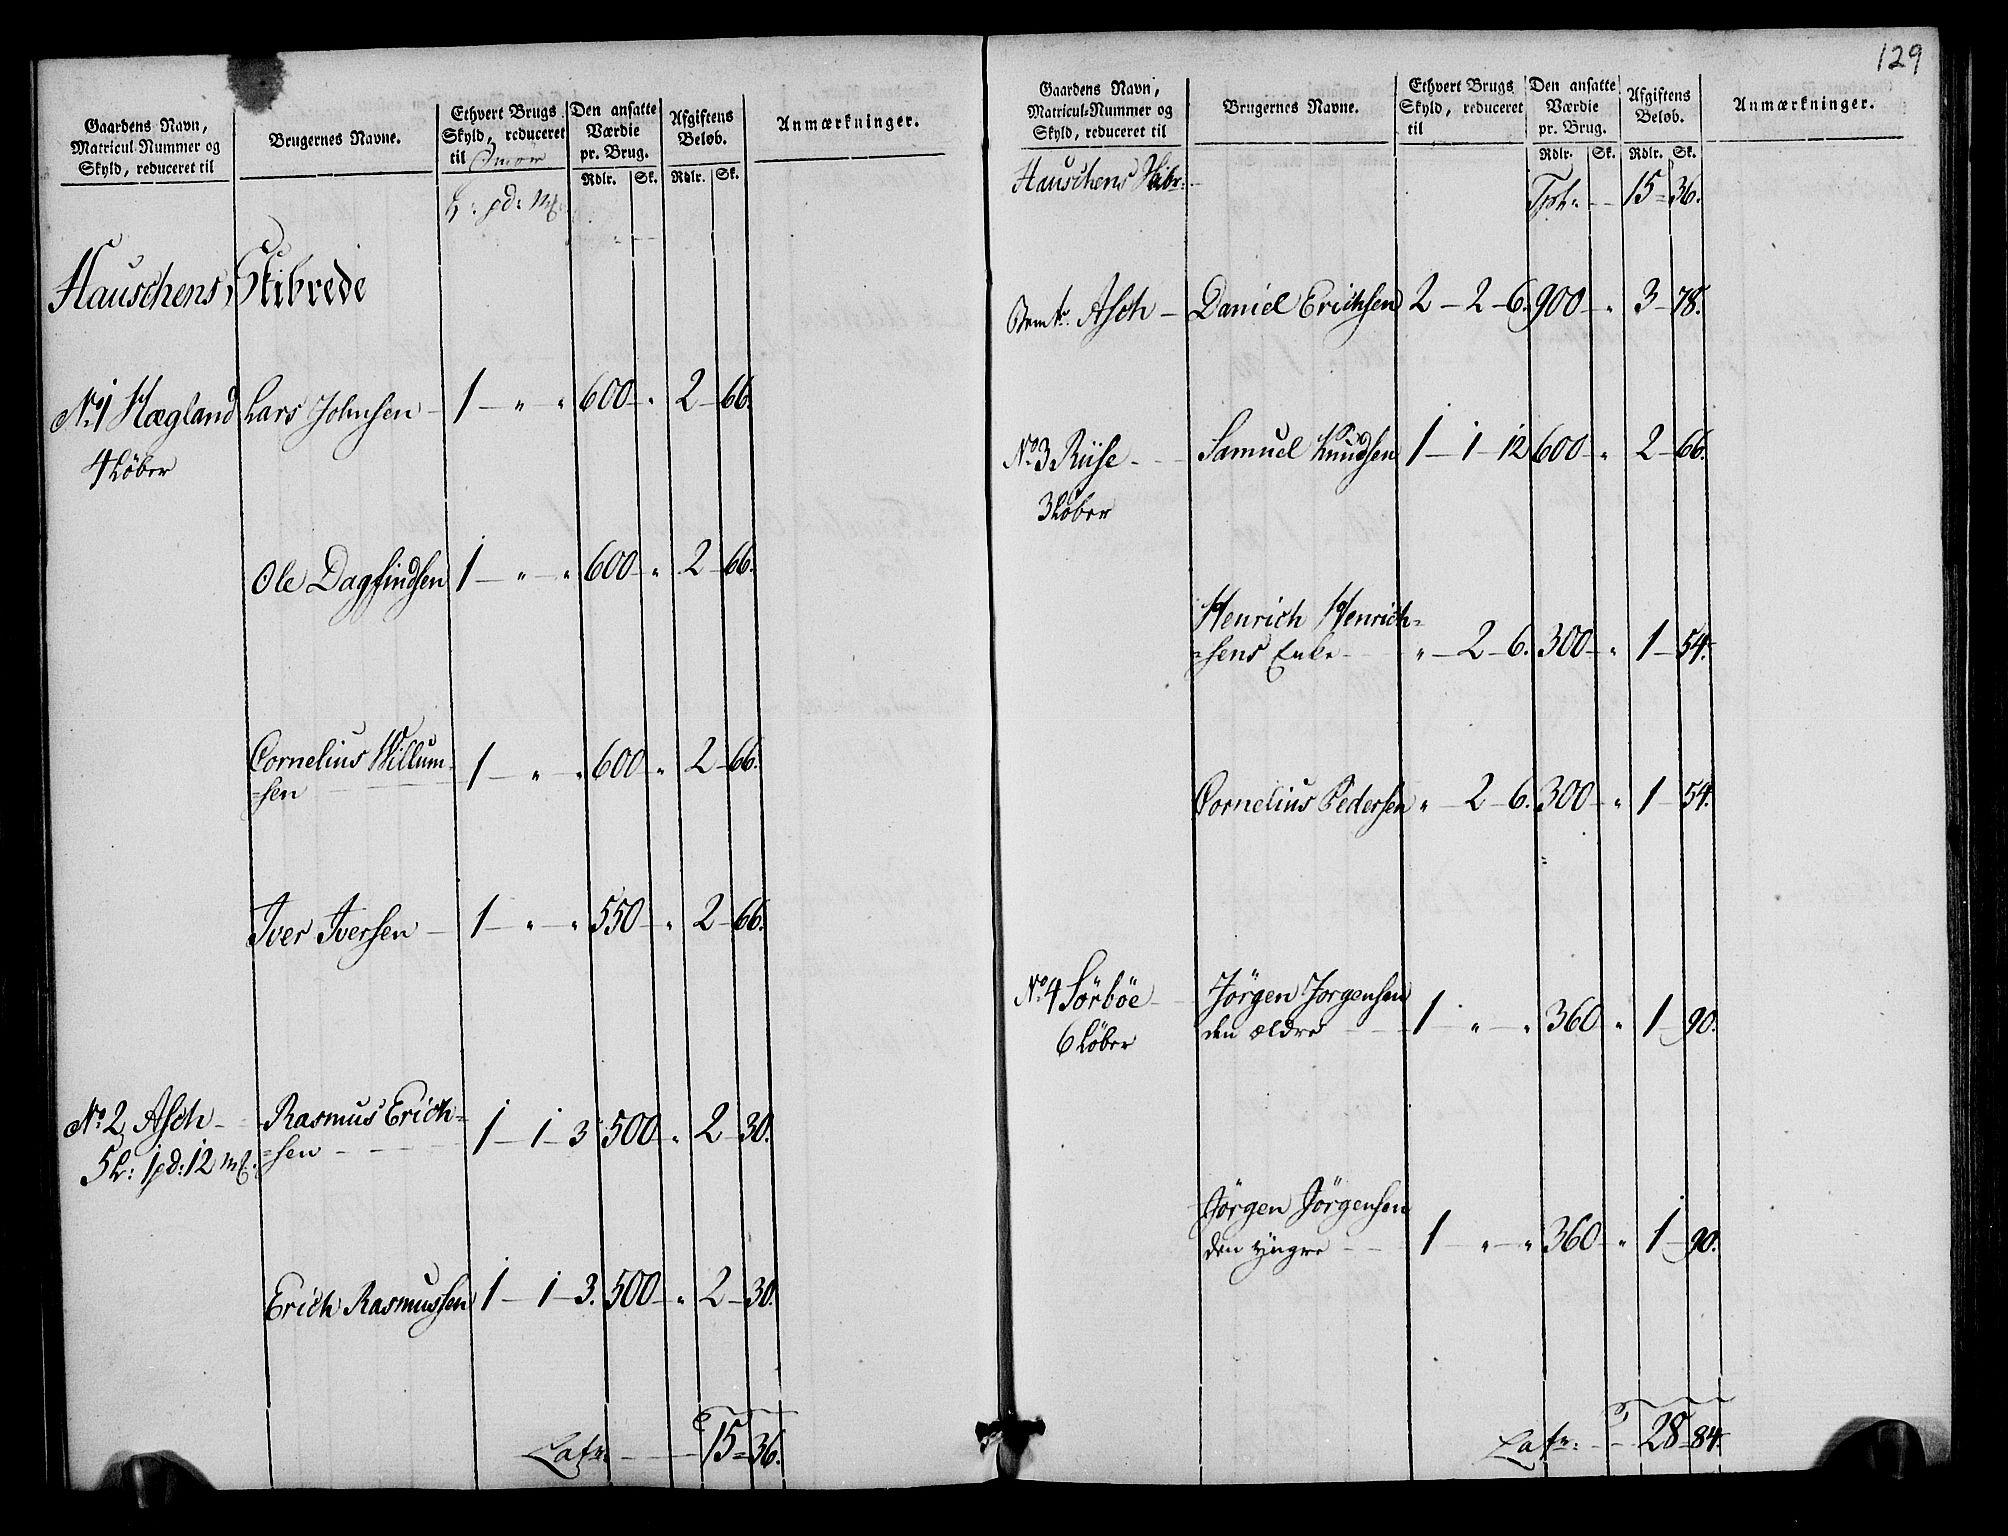 Gaardens Navn,
Matricul-Nummer og
Skyld, reduceret til
Brugernes Navne.
Ethvert Brugs
Skyld, reduceret
til Smør
Den ansatte
Værdie
pr. Brug.
Afgiftens
Beløb.
Anmærkninger.
Rdlr. Sk. Rdlr. Sk.
L: pd: M
Hauschens Skibrede
No 1 Hægland Lars Johnsen - 1 - " " 600 - " 2 - 66.
4 Løber
Ole Dagfindsen 1 - " - " 600 - " 2 - 66.
Cornelius Willum=
=sen 1 - " " 600 " 2 - 66.
Iver Iversen - 1 - " - " 550 " 2 - 66.
No 2 Asch - Rasmus Erich=
5 L: 1 pd: 12 M =sen 1 - 1 - 3 500 - " 2 - 30.
Erich Rasmussen 1 - 1 - 3. 500 - " 2 - 30.
Latr. 15 = 36.
129
Gaardens Navn,
Matricul-Nummer og
Skyld, reduceret til
Brugernes Navne.
Ethvert Brugs
Skyld, reduceret
til
Den ansatte
Værdie
pr. Brug.
Afgiftens
Beløb.
Anmærkninger.
Rdlr. Sk. Rdlr. Sk.
Hauschens Skibr:
Tpt: 15 = 36.
Asch - Daniel Erichsen 2 - 2 - 6. 900 - " 3 - 78.
No 3 Riise - Samuel Knudsen 1 - 1 - 12 600 - " 2 - 66.
3 Løber
Henrich Henrich=
=sens Enke " - 2 - 6. 300 - " 1 - 54.
Cornelius Pedersen " - 2 - 6. 300 - " 1 - 54.
No 4 Sörböe - Jörgen Jorgensen
6 Löber den ældre 1 - " - " 360 " 1 - 90.
Jörgen Jörgensen
den yngre 1 - " - " 360 - " 1 - 90.
Latr: 28 - 84.